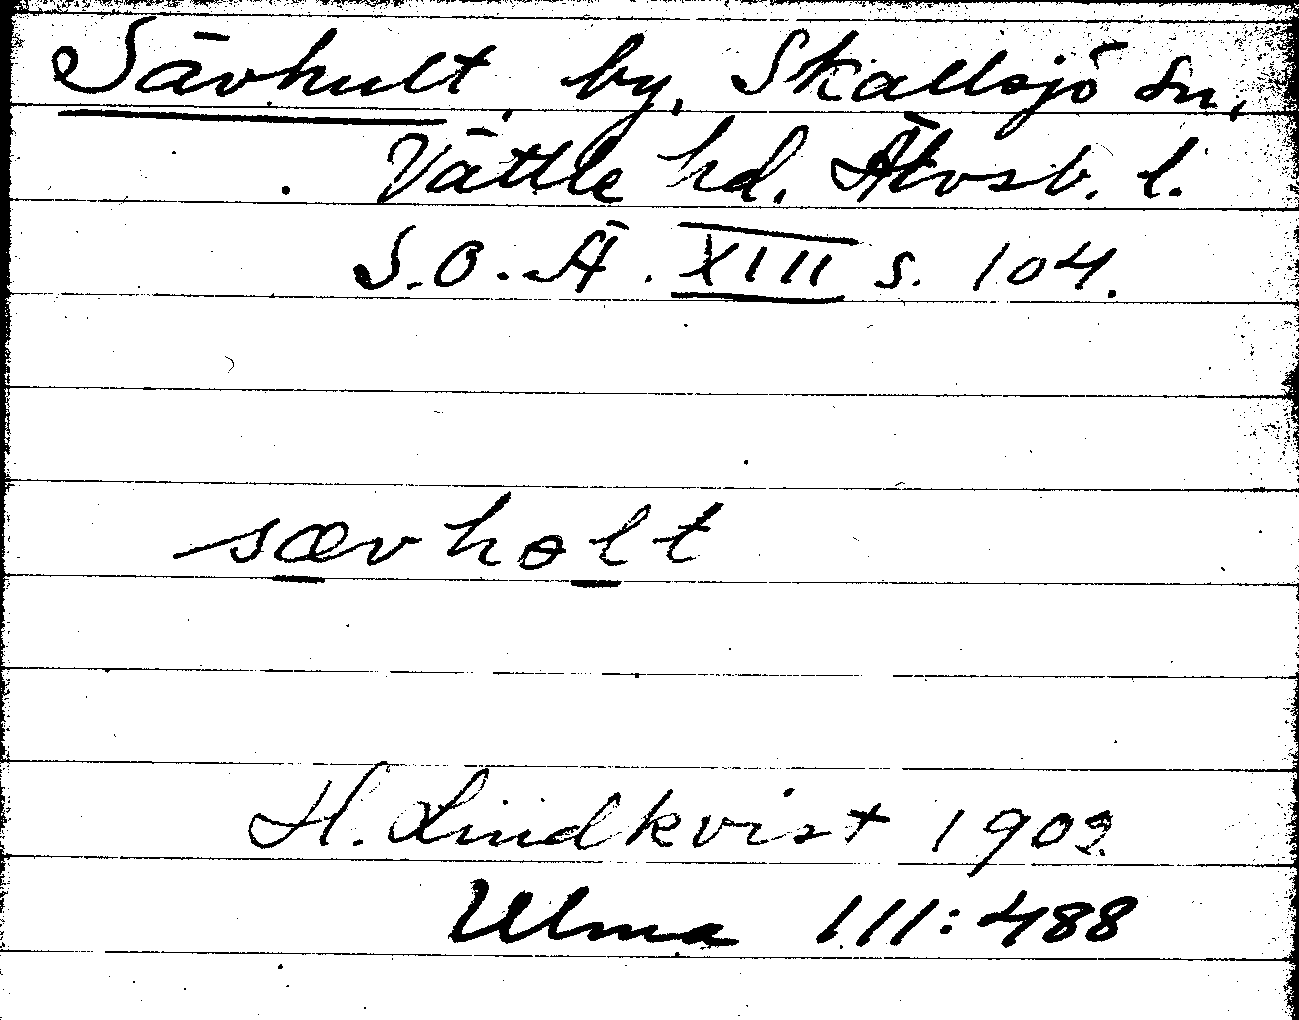 Sävhult, by, Skallsjö sn,
Vättle hd. Älvsb. l.
S.O.Ä. XIII s. 104.
sævhɵlt
H. Lindkvist 1909.
Ulma 111:488